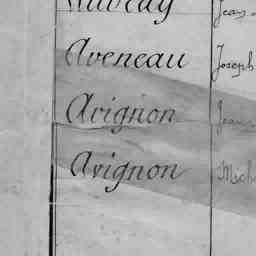 Aveneau Joseph
Avignon Jean
Avignon